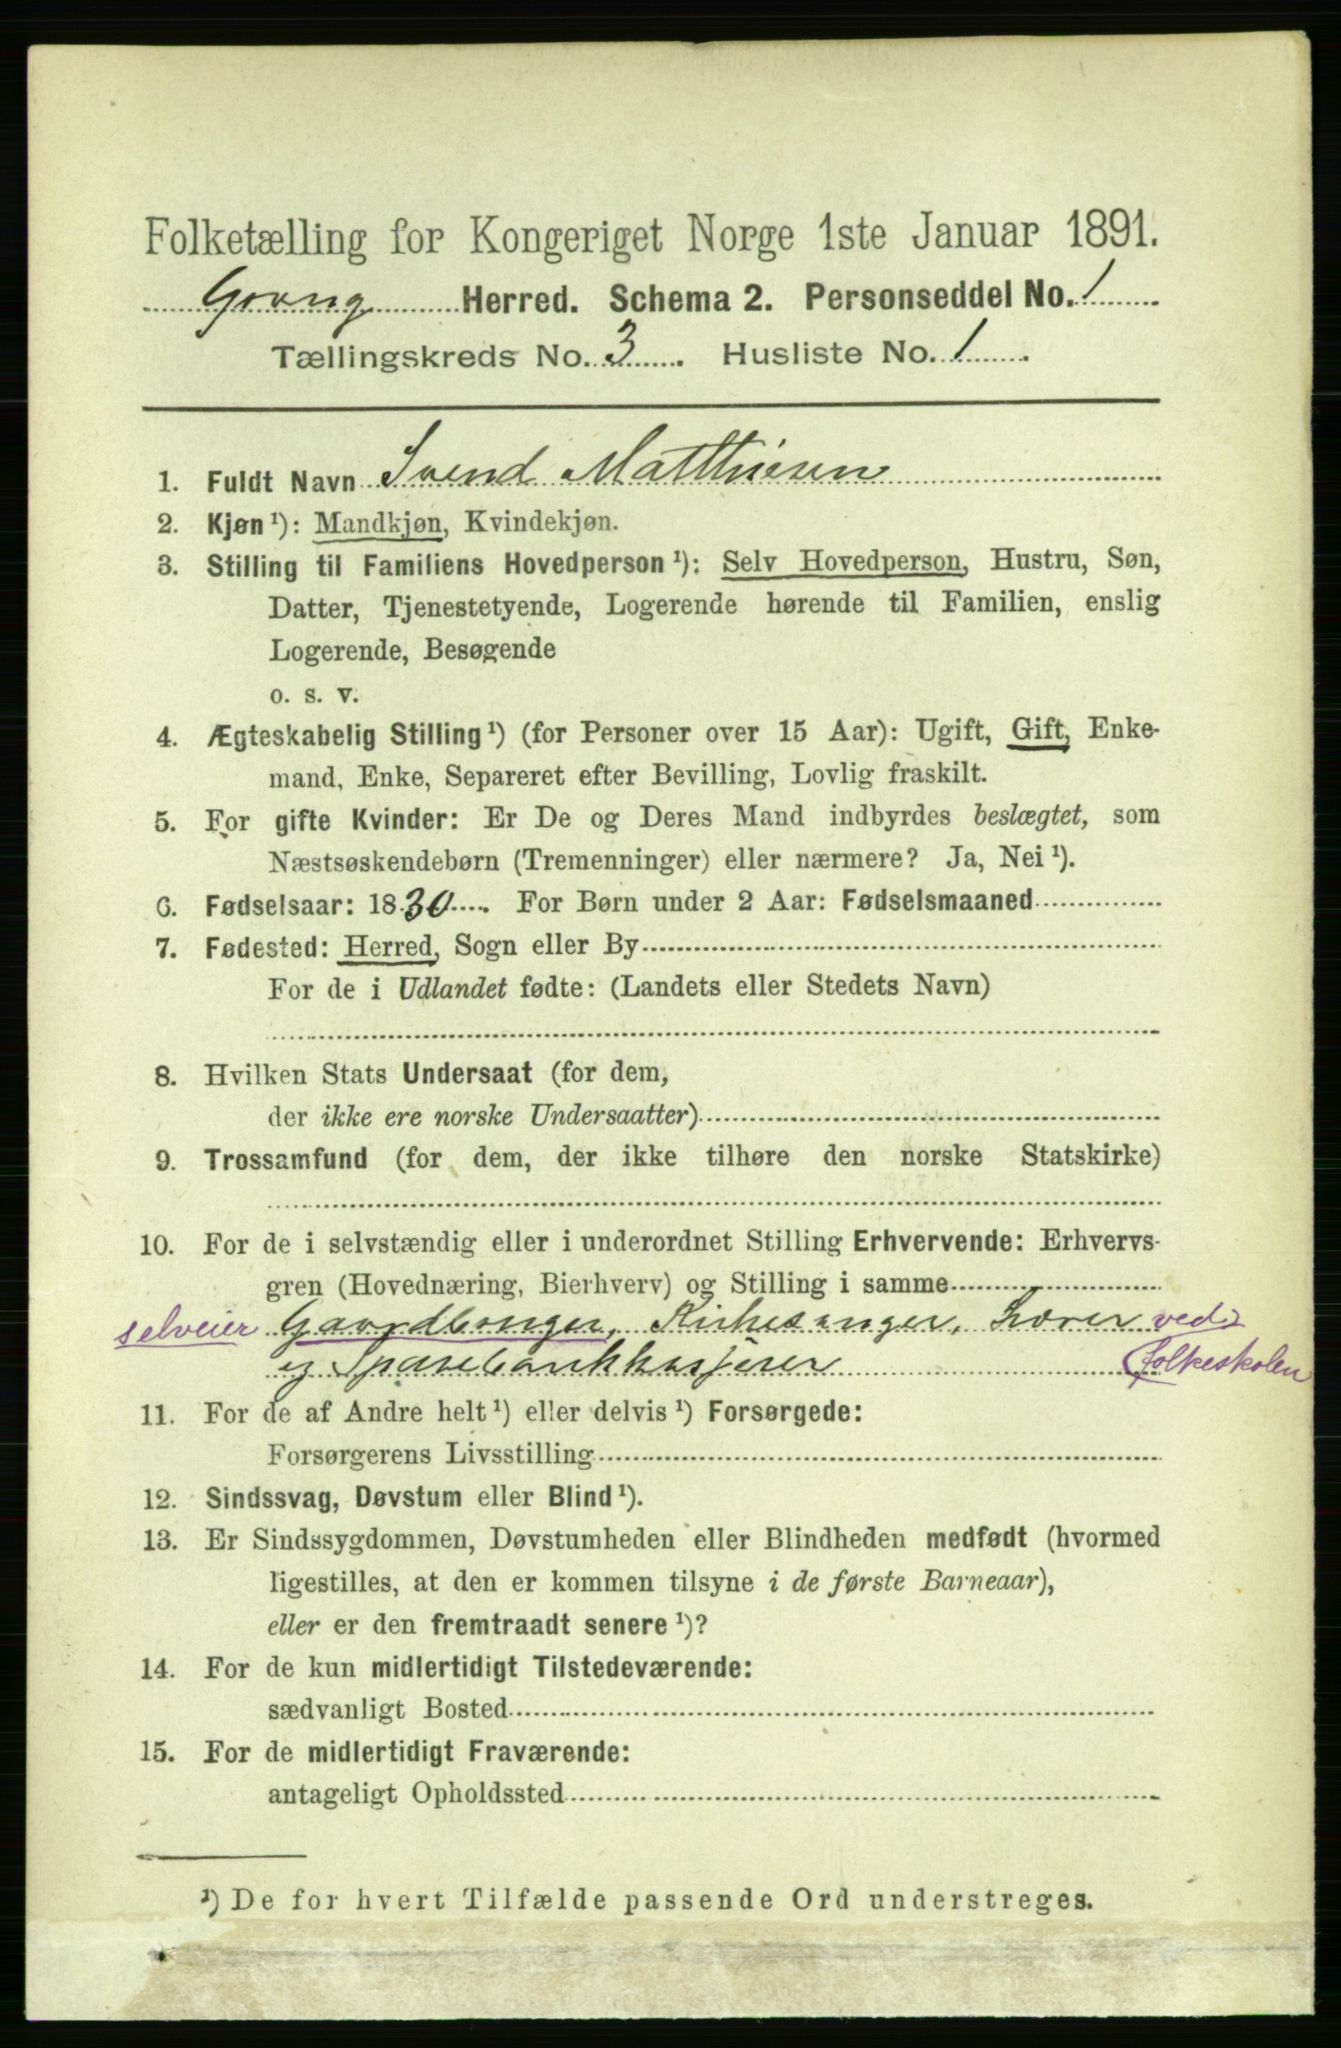 Folketælling for Kongeriget Norge 1ste Januar 1891.
Grong Herred. Schema 2. Personseddel No. 1
Tællingskreds No. 3. Husliste No. 1.
1. Fuldt Navn Svend Matthiesen
2. Kjøn ¹): Mandkjøn, Kvindekjøn.
3. Stilling til Familiens Hovedperson ¹): Selv Hovedperson, Hustru, Søn,
Datter, Tjenestetyende, Logerende hørende til Familien, enslig
Logerende, Besøgende
o. s. v.
4. Ægteskabelig Stilling ¹) (for Personer over 15 Aar): Ugift, Gift, Enke-
mand, Enke, Separeret efter Bevilling, Lovlig fraskilt.
5. For gifte Kvinder: Er De og Deres Mand indbyrdes beslægtet, som
Næstsøskendebørn (Tremenninger) eller nærmere? Ja, Nei ¹).
6. Fødselsaar: 1830. For Børn under 2 Aar: Fødselsmaaned
7. Fødested: Herred, Sogn eller By
For de i Udlandet fødte: (Landets eller Stedets Navn)
8. Hvilken Stats Undersaat (for dem,
der ikke ere norske Undersaatter)
9. Trossamfund (for dem, der ikke tilhøre den norske Statskirke)
10. For de i selvstændig eller i underordnet Stilling Erhvervende: Erhvervs-
gren (Hovednæring, Bierhverv) og Stilling i samme
selveier Gaardbruger, Kirkesanger, Lærer ved
og Sparebankkasserer folkeskolen
11. For de af Andre helt ¹) eller delvis ¹) Forsørgede:
Forsørgerens Livsstilling
12. Sindssvag, Døvstum eller Blind ¹).
13. Er Sindssygdommen, Døvstumheden eller Blindheden medfødt (hvormed
ligestilles, at den er kommen tilsyne i de første Barneaar),
eller er den fremtraadt senere ¹)?
14. For de kun midlertidigt Tilstedeværende:
sædvanligt Bosted
15. For de midlertidigt Fraværende:
antageligt Opholdssted
¹) De for hvert Tilfælde passende Ord understreges.